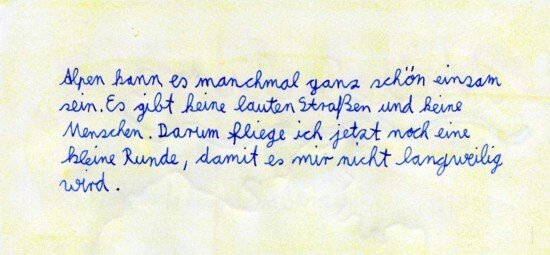 Alpen kann es manchmal ganz schön einsam
sein. Es gibt keine lauten Straßen und keine
Menschen. Darum fliege ich jetzt noch eine
kleine Runde, damit es mir nicht langweilig
wird.